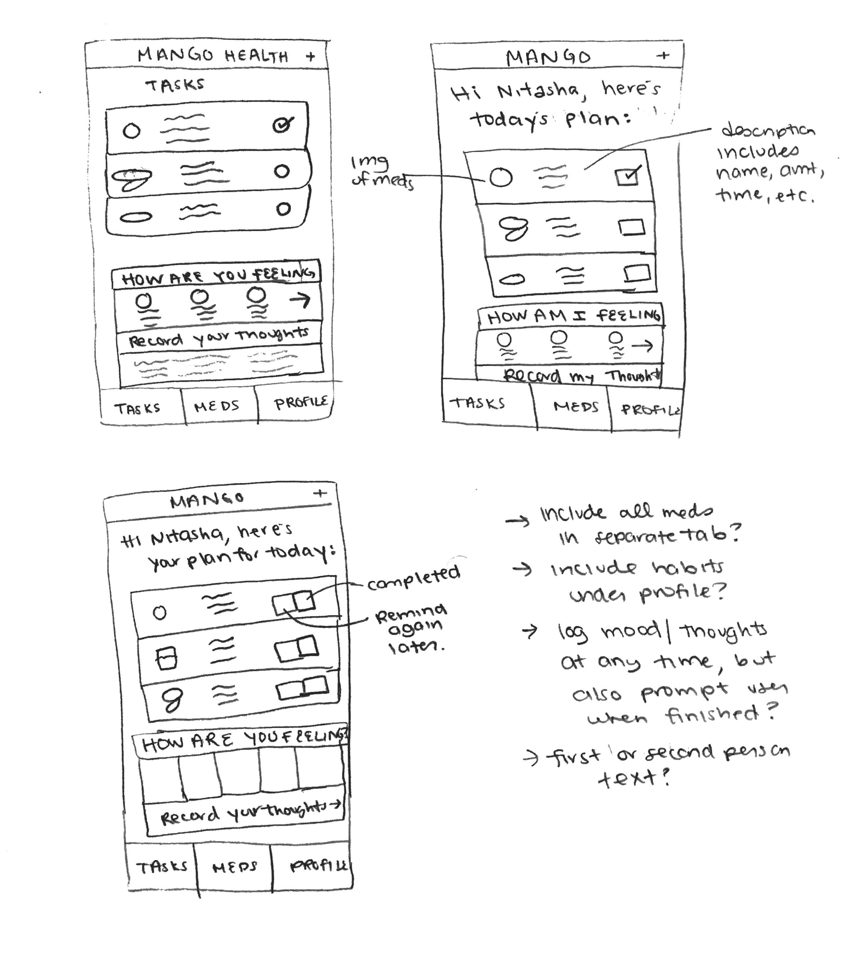 MANGO HEALTH +
TASKS
HOW ARE YOU FEELING
Record your thoughts
TASKS MEDS PROFILE
MANGO +
Hi Nitasha, here's
today's plan:
img
of meds
description
includes
name, amt,
time, etc.
HOW AM I FEELING
RECORD MY THOUGHT
TASKS MEDS PROFILE
MANGO +
Hi Nitasha, here's
your plan for today:
completed
Remind
again
later.
HOW ARE YOU FEELING?
Record your thoughts →
TASKS MEDS PROFILE
→ include all meds
in separate tab?
→ include habits
under profile?
→ log mood/thoughts
at any time, but
also prompt user
when finished?
→ first or second person
text?